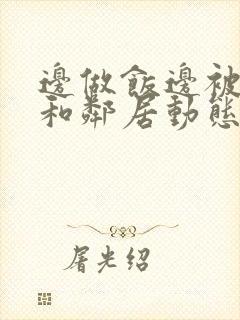 邊做飯邊被
和鄰居動態
屠光绍